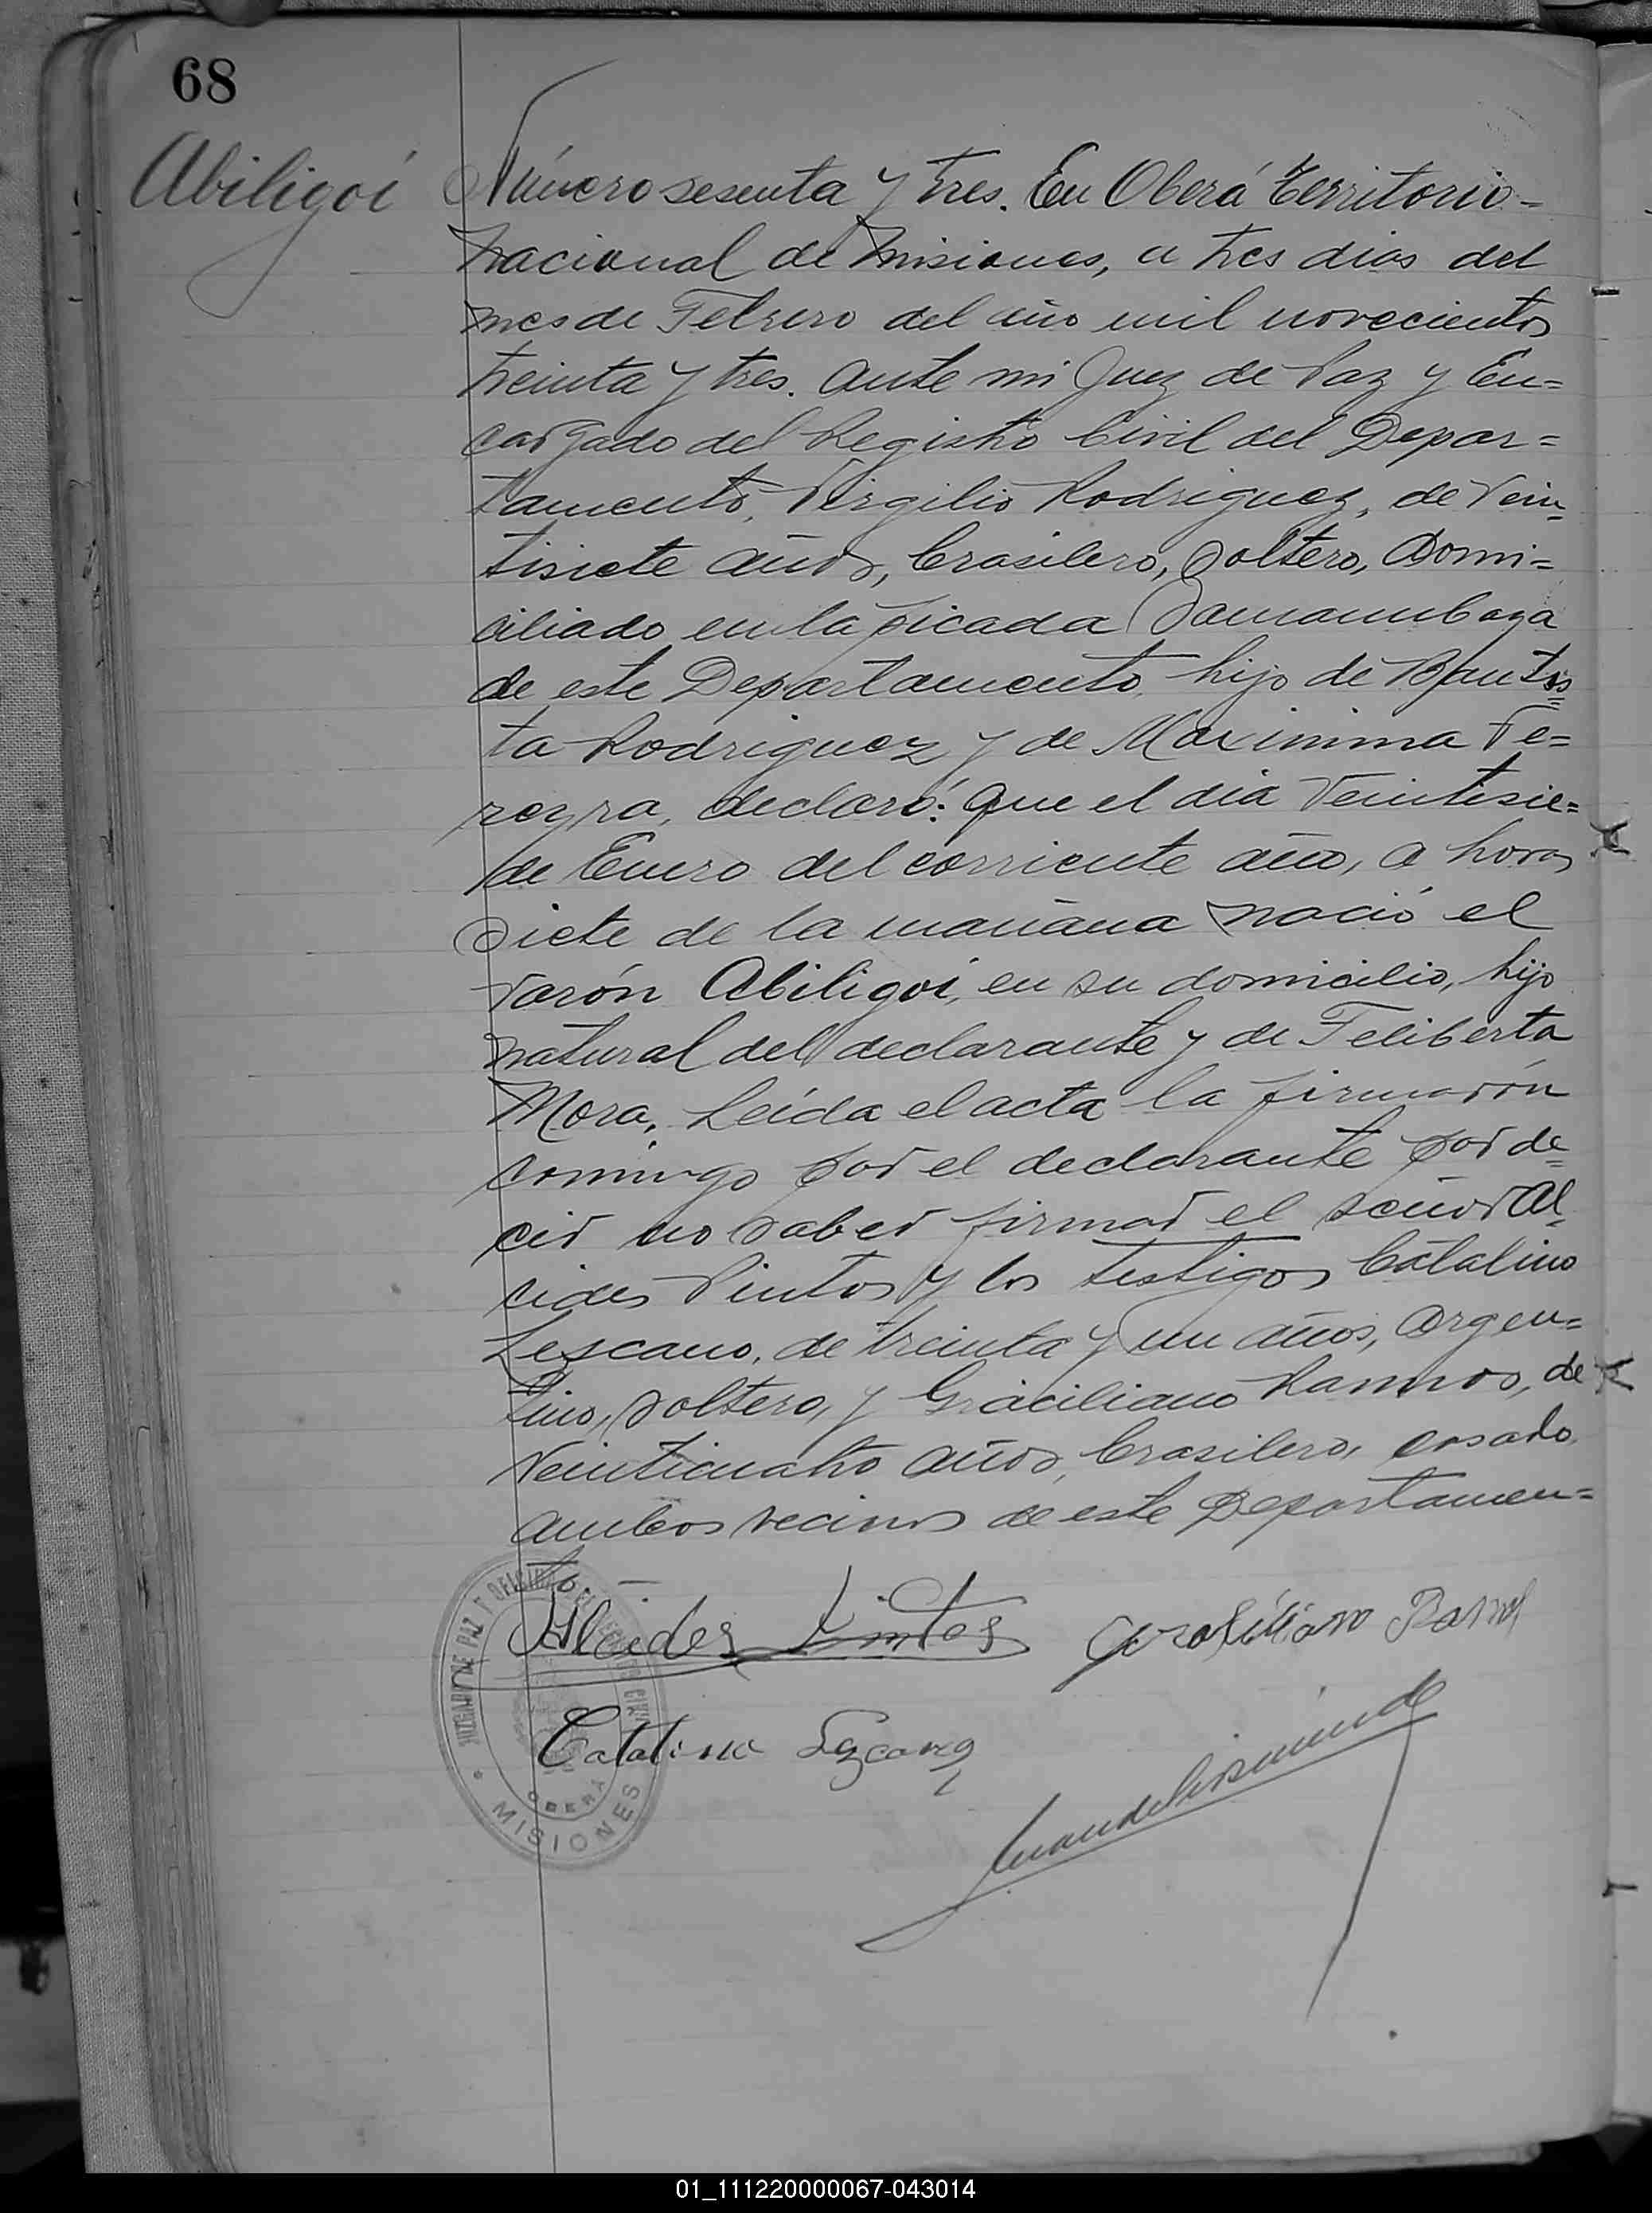 68
Abiligoi
Número sesenta y tres. En Oberá Territorio-
nacional de Misiones, a tres dias del
mes de Febrero del año mil novecientos
treinta y tres. Ante mi Juez de Paz y En=
cargado del Registro Civil del Depar=
tamento, Virgilio Rodriguez, de vein-
tisiete años, brasilero, soltero, domi=
ciliado en la picada
de este Departamento, hijo de Bautis=
ta Rodriguez y de Maximima Fe=
reyra, declaró: que el dia veintisie=
de Enero del corriente año, a horas
siete de la mañana nació el
varón Abiligoi, en su domicilio, hijo
natural del declarante y de Feliberta
Mora. Leida el acta la firmarón
conmigo por el declarante por de=
cir no saber firmar el señor Al-
cides Pintos y los testigos Catalino
Lescano, de treinta y un años, argen=
tino, soltero, y Graciliano Ramos, de
veinticuatro años, brasilero, casado,
ambos vecinos de este Departamen=
to.-
Alcides Pintos
Catalino Lezcano
JUZGADO DE PAZ Y OFICINA DEL REGISTRO CIVIL
OBERÁ
MISIONES
01_111220000067-043014